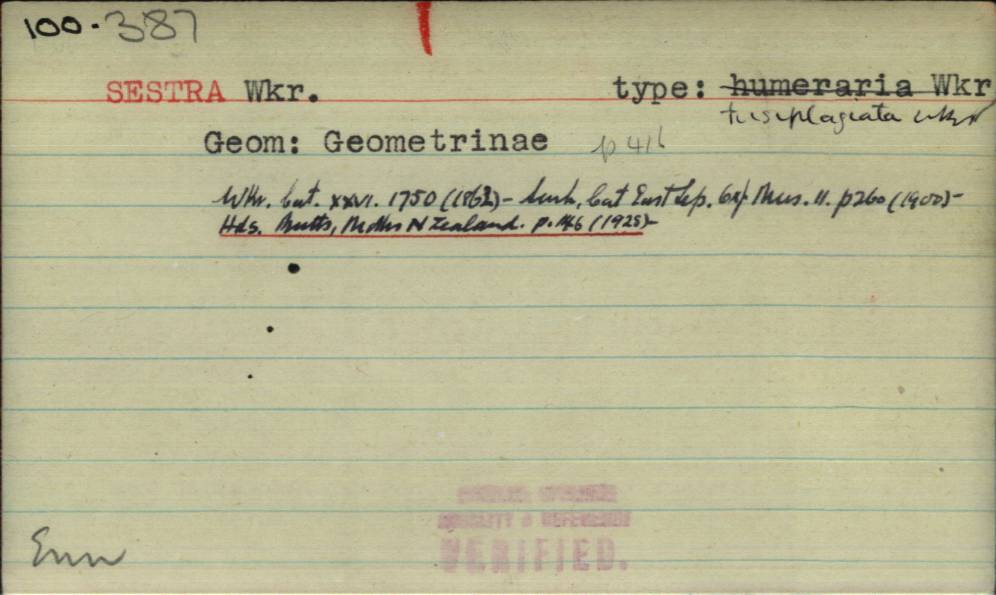 100-387
SESTRA Wkr. type: humeraria Wkr
fusiplagiata Wkr
Geom: Geometrinae p 416
Wkr. Cat. XXVI. 1750 (1862)- Cat East Lep. Mus. II. p260 (1900)-
Hds. Butts, Moths N Zealand. p. 146 (1928)-
VERIFIED.
Enn